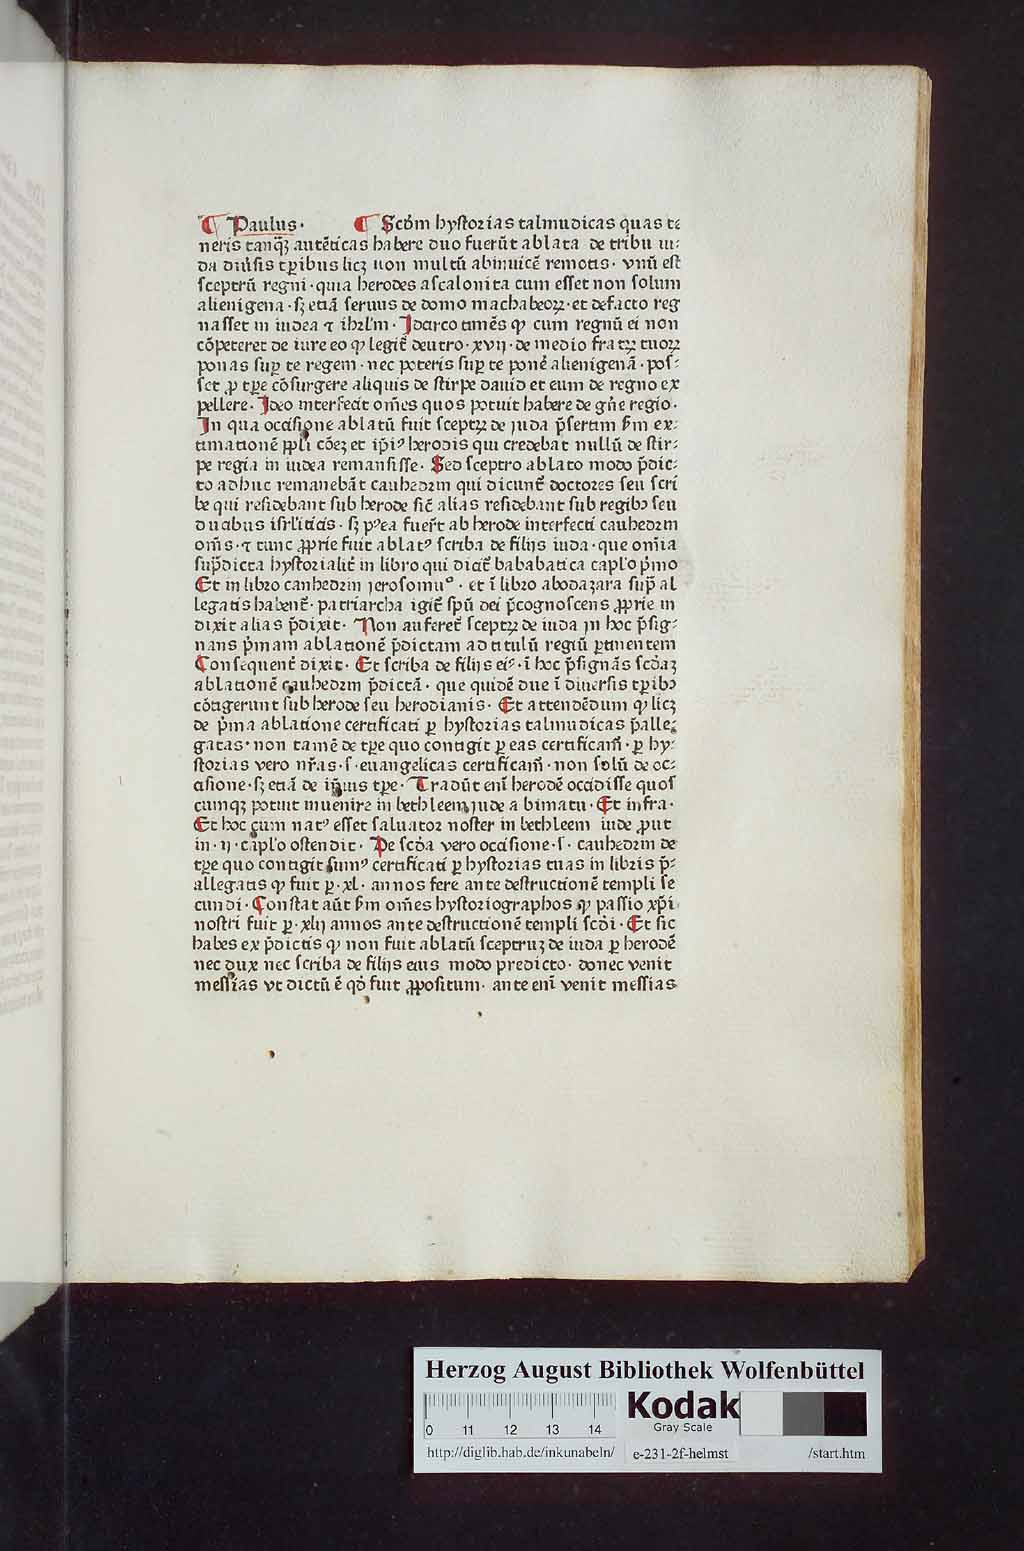 ¶ Paulus· ¶ Scdm hystorias talmudicas quas te
neris tanq̃ʒ autēticas habere duo fuerūt ablata de tribu iu:
da diũsis tp̱ibus licʒ non multū abinuicē remotis· vnū est
sceptrū regni· quia herodes ascalonita cum esset non solum
alienigena· sʒ etiā seruus de domo machabeoꝝ· et de facto reg
nasset in iudea ⁊ ihrl'm· Idarco timēs ꝙ cum regnū ei non
cōpeteret de iure eo ꝙ legit̃ deutro· xvij· de medio fratꝝ tuoꝝ
ponas suꝑ te regem· nec poteris suꝑ te ponẽ alienigenā· pos:
set ꝓ tꝑe cōsurgere aliquis de stirpe dauid et eum de regno ex
pellere· Ideo interfecit om̄es quos potuit habere de gñe regio·
In qua occisione ablatū fuit sceptꝝ de juda p̃sertim ẜm ex:
timationē ppl'i cōeʒ et ip̄i⁹ herodis qui credebat nullū de stir:
pe regia in iudea remansisse· Sed sceptro ablato modo p̃dic:
to adhuc remanebāt cauhedrin qui dicunt̃ doctores seu scri
be qui residebant sub herode sic̃ alias residebant sub regibꝫ seu
ducibus isrl'iticis· sʒ p⁹ea fuer̃t ab herode interfecti cauhedrin
om̄s· ⁊ tunc ꝓprie fuit ablat⁹ scriba de filijs iuda· que om̄ia
sup̃dicta hystorialit̃ in libro qui dicit̃ bababatica capl'o p̃mo
Et in libro canhedrin jerosomi⁹· et ī libro abodazara sup̃ al
legatis habent̃· patriarcha igit̃ spũ dei p̃cognoscens ꝓprie in
dixit alias p̃dixit· Non auferet̃ sceptꝝ de iuda in hoc p̃sig:
nans p̃mam ablationē p̃dictam ad titulū regiū ꝑtinentem
Consequent̃ dixit· Et scriba de filijs ei⁹· ī hoc p̃signās scd̃aʒ
ablationē cauhedrin p̃dictā· que quidē due ī diuersis tꝑibꝫ
cōtigerunt sub herode seu herodianis· Et attendēdum ꝙ licʒ
de p̃ma ablatione certificati ꝑ hystorias talmudicas p̃alle:
gatas· non tamē de tꝑe quo contigit ꝑ eas certificam̃· ꝑ hy:
storias vero nr̃as· s· euangelicas certificam̃· non solū de oc:
cisione· sʒ etiā de ip̄ius tꝑe· Tradūt eni herodē occidisse quos
cumqʒ potuit inuenire in bethleem jude a bimatu· Et infra·
Et hoc cum nat⁹ esset saluator noster in bethleem iude ꝓut
in· ij· capl'o ostendit· De scd̃a vero occisione· s· cauhedrin de
tꝑe quo contigit sum⁹ certificati ꝑ hystorias tuas in libris p̃:
allegatis ꝙ fuit ꝑ· xl· annos fere ante destructionē templi se
cundi· Constat aūt ẜm om̄es hystoriographos ꝙ passio xp̄i
nostri fuit ꝑ· xlij annos ante destructionē templi scd̃i· Et sic
habes ex p̃dictis ꝙ non fuit ablatū sceptruʒ de iuda ꝑ herodē
nec dux nec scriba de filijs eius modo predicto· donec venit
messias vt dictū ē qd̃ fuit ꝓpositum· ante enī venit messias
Herzog August Bibliothek Wolfenbüttel
Kodak
Gray Scale
0 11 12 13 14
http://diglib.hab.de/inkunabeln/ e-231-2f-helmst /start.htm